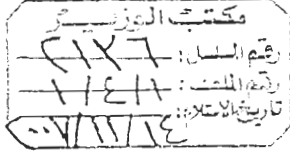 مكتب الوزير
رقم المسلسل: ٢١٢٦
رقم الملف: ١/٤/١
تاريخ الاستلام:
١٤/١١/٠٠٧